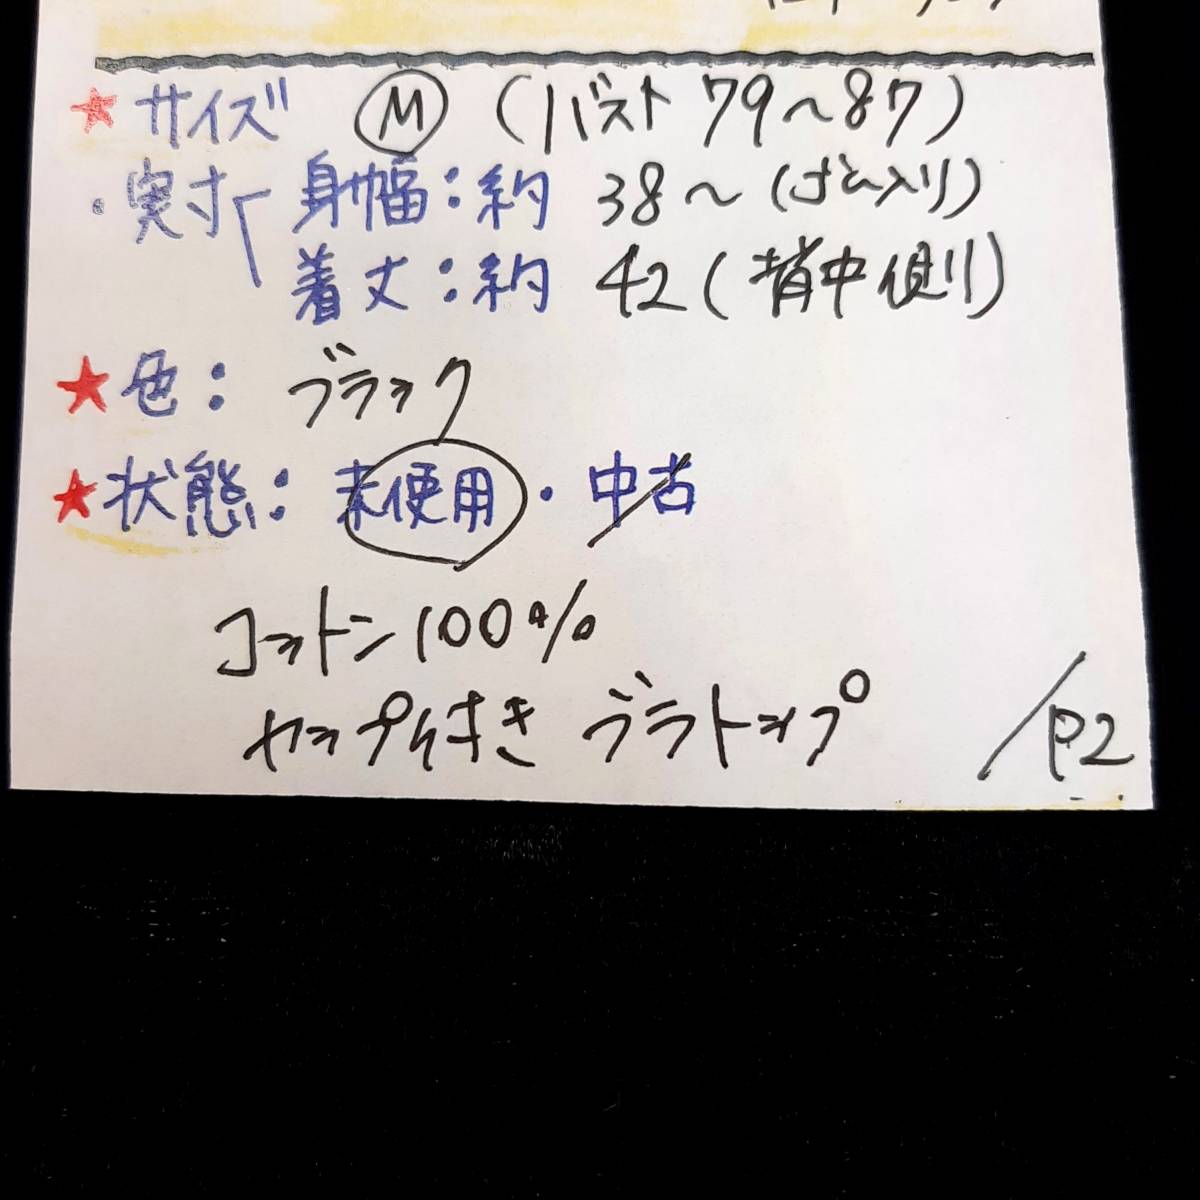 ★サイズ Ⓜ (バスト 79～87)
・実寸 身幅：約 38～(ゴム入り)
着丈：約 42(背中側)
★色：ブラック
★状態：未使用・中古
コットン100%
カップ付き ブラトップ /P2